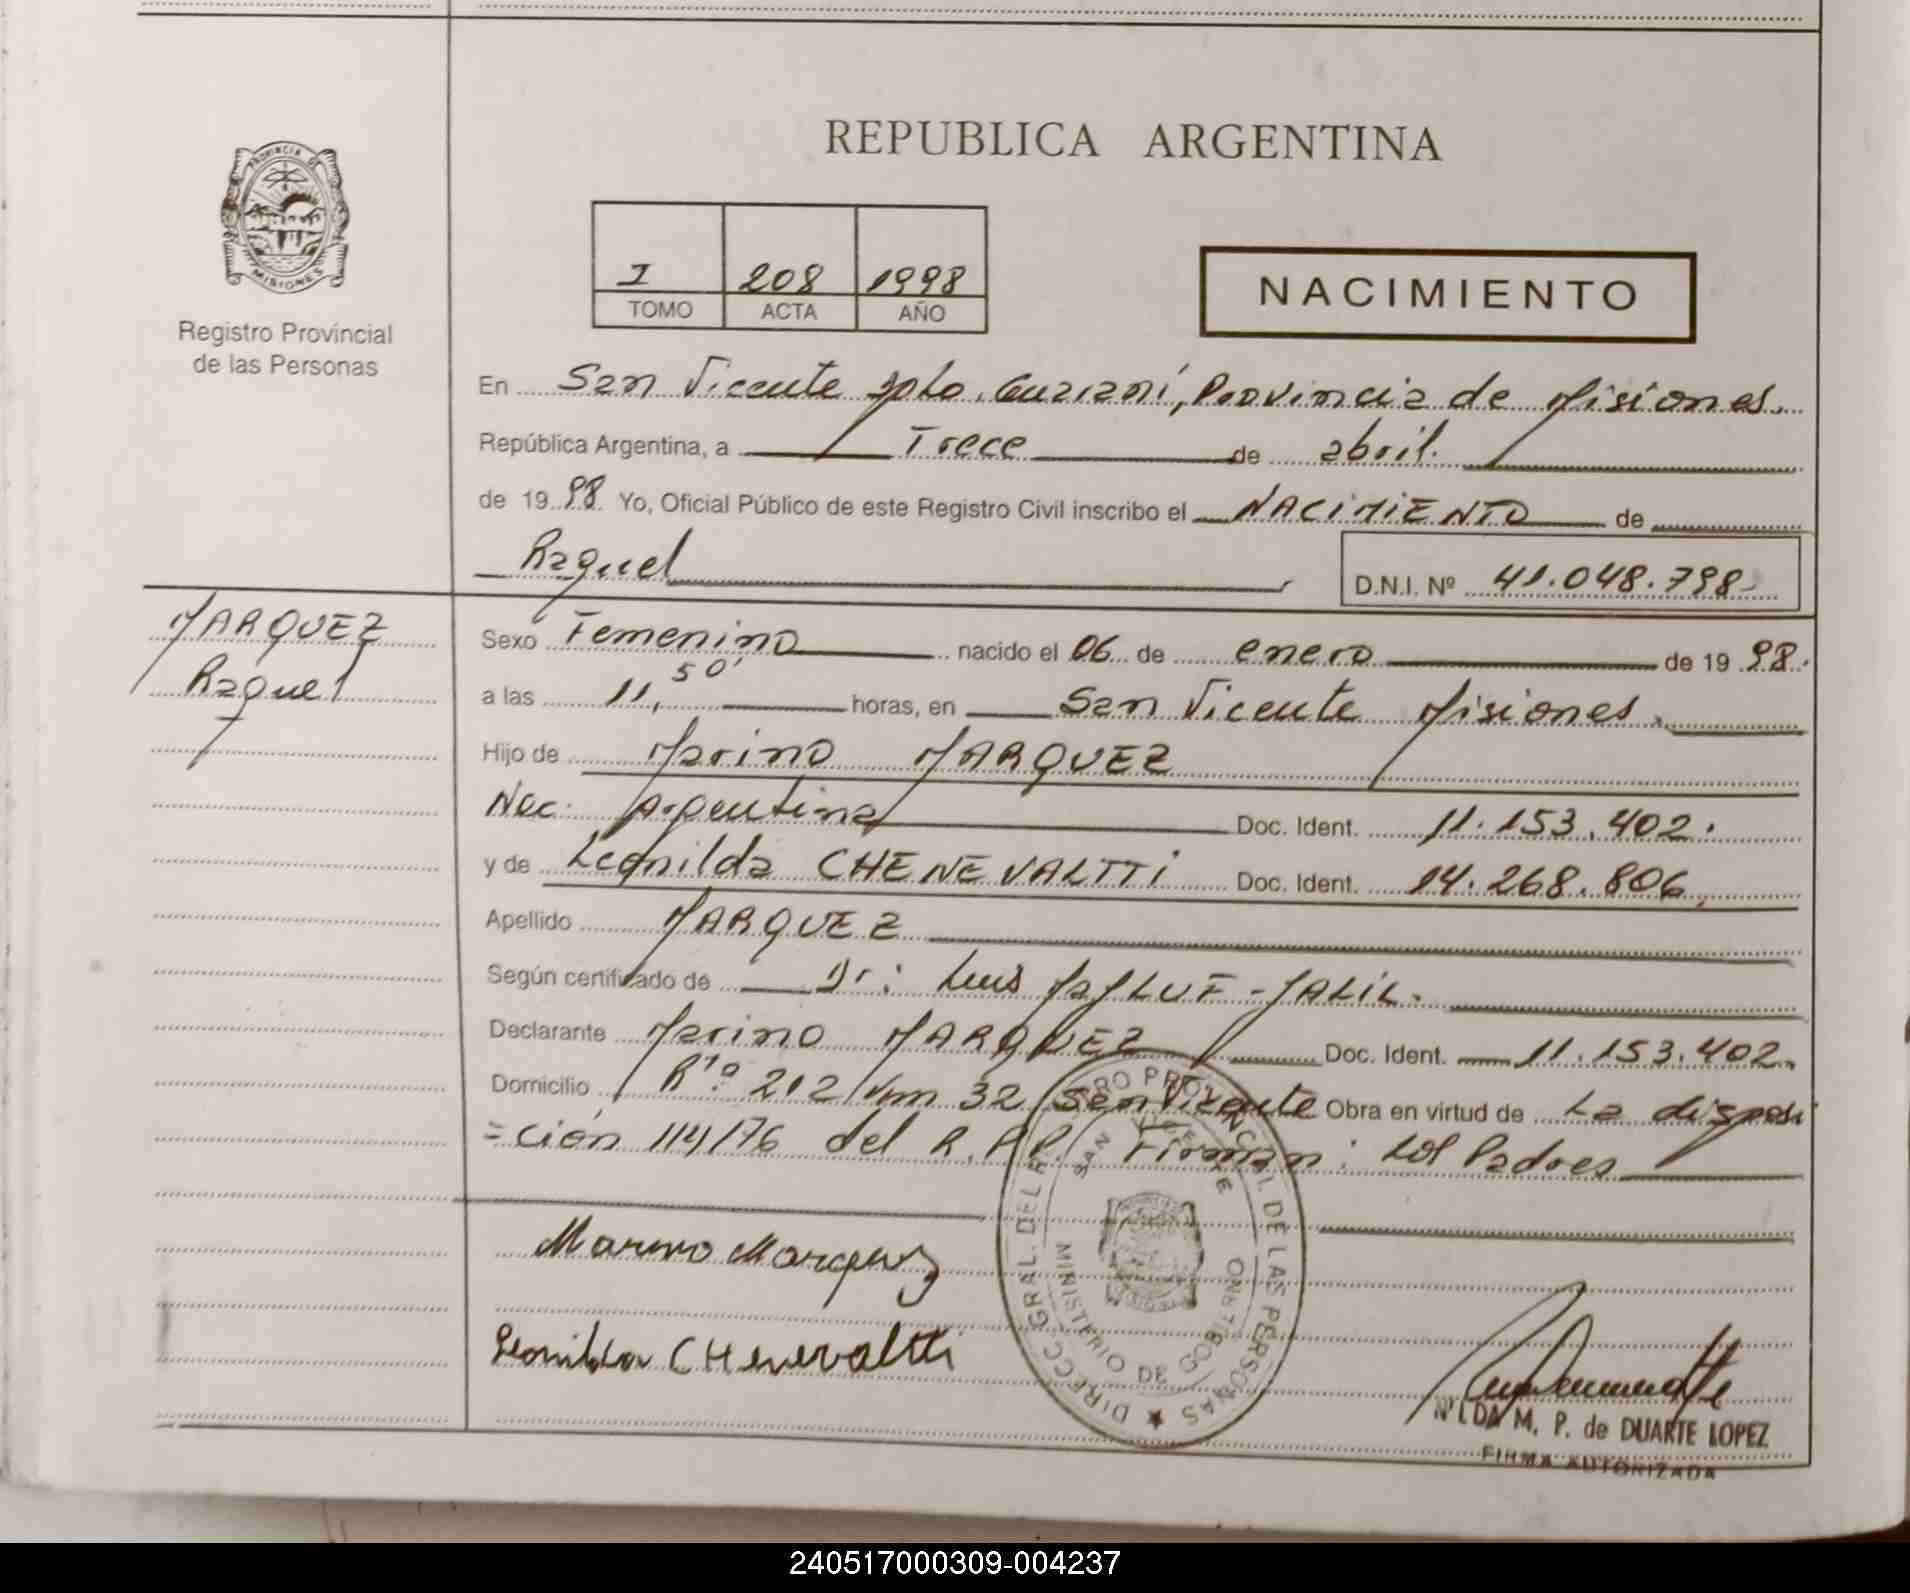 PROVINCIA DE
MISIONES
Registro Provincial
de las Personas
REPUBLICA ARGENTINA
I 208 1998
TOMO ACTA AÑO
NACIMIENTO
En San Vicente Dpto. Guaraní, Provincia de Misiones.
República Argentina, a Trece de abril.
de 1998. Yo, Oficial Público de este Registro Civil inscribo el NACIMIENTO de
Raquel
D.N.I. Nº 41.048.798
MARQUEZ
Raquel
Sexo Femenino nacido el 06 de enero de 1998.
a las 11,50' horas, en San Vicente Misiones.
Hijo de Marino MARQUEZ
Nac. Argentina Doc. Ident. 11.153.402.
y de Leonilda CHENEVALTTi Doc. Ident. 14.268.806
Apellido MARQUEZ
Según certificado de Dr: Luis MALIL.
Declarante Marino MARQUEZ Doc. Ident. 11.153.402.
Domicilio 212 km 32 San Vicente Obra en virtud de La disposi
=ción 114/76 del R.P.P. Firman: los Padres
Marino Marquez
Leonilda CHenevaltti
DIRECC. GRAL. DEL REGISTRO PROVINCIAL DE LAS PERSONAS
SAN VICENTE
MINISTERIO DE GOBIERNO
NILDA M. P. de DUARTE LOPEZ
FIRMA AUTORIZADA
240517000309-004237